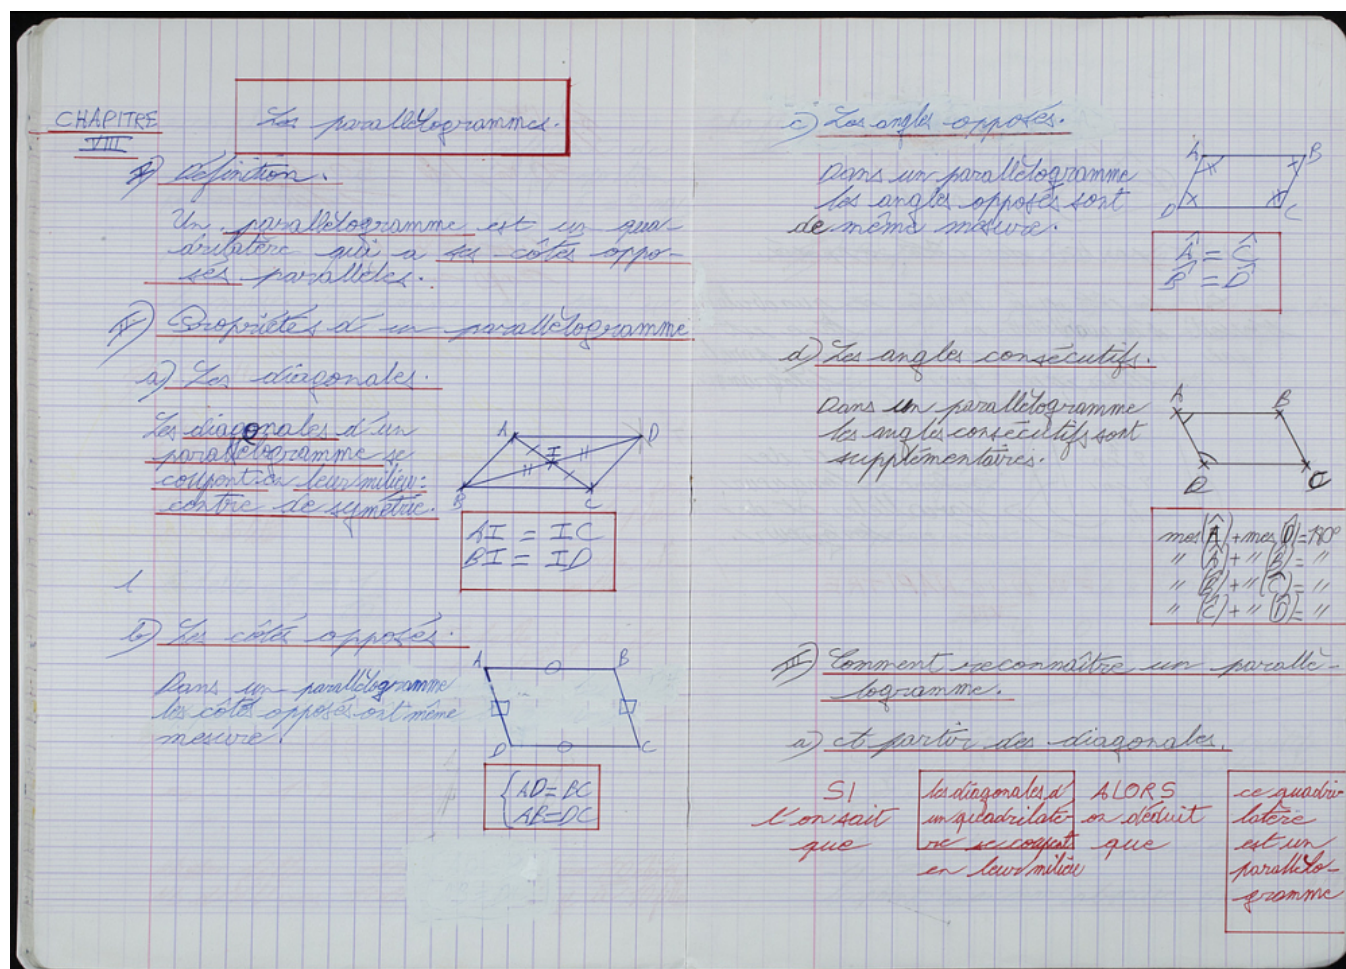 CHAPITRE
VIII
Les parallélogrammes.
I) Définition.
Un parallélogramme est un qua-
drilatère qui a ses côtés oppo-
sés parallèles.
II) Propriétés d'un parallélogramme
a) Les diagonales.
Les diagonales d'un
parallélogramme se
coupent en leur milieu:
centre de symétrie.
A
D
I
B
C
AI = IC
BI = ID
l
b) Les côtés opposés.
Dans un parallélogramme
les côtés opposés ont même
mesure.
A
B
D
C
AD=BC
AB=DC
c) Les angles opposés.
Dans un parallélogramme
les angles opposés sont
de même mesure.
A
B
D
C
Â = Ĉ
B̂ = D̂
d) Les angles consécutifs.
Dans un parallélogramme
les angles consécutifs sont
supplémentaires.
A
B
D
C
mes(Â)+mes(D̂)=180°
" (Â)+ " (B̂)= "
" (B̂)+ " (Ĉ)= "
" (Ĉ)+ " (D̂)= "
III) Comment reconnaître un parallé-
logramme.
a) A partir des diagonales.
SI
l'on sait
que
les diagonales d'
un quadrilatè-
re se coupent
en leur milieu
ALORS
on déduit
que
ce quadri-
latère
est un
parallélo-
gramme